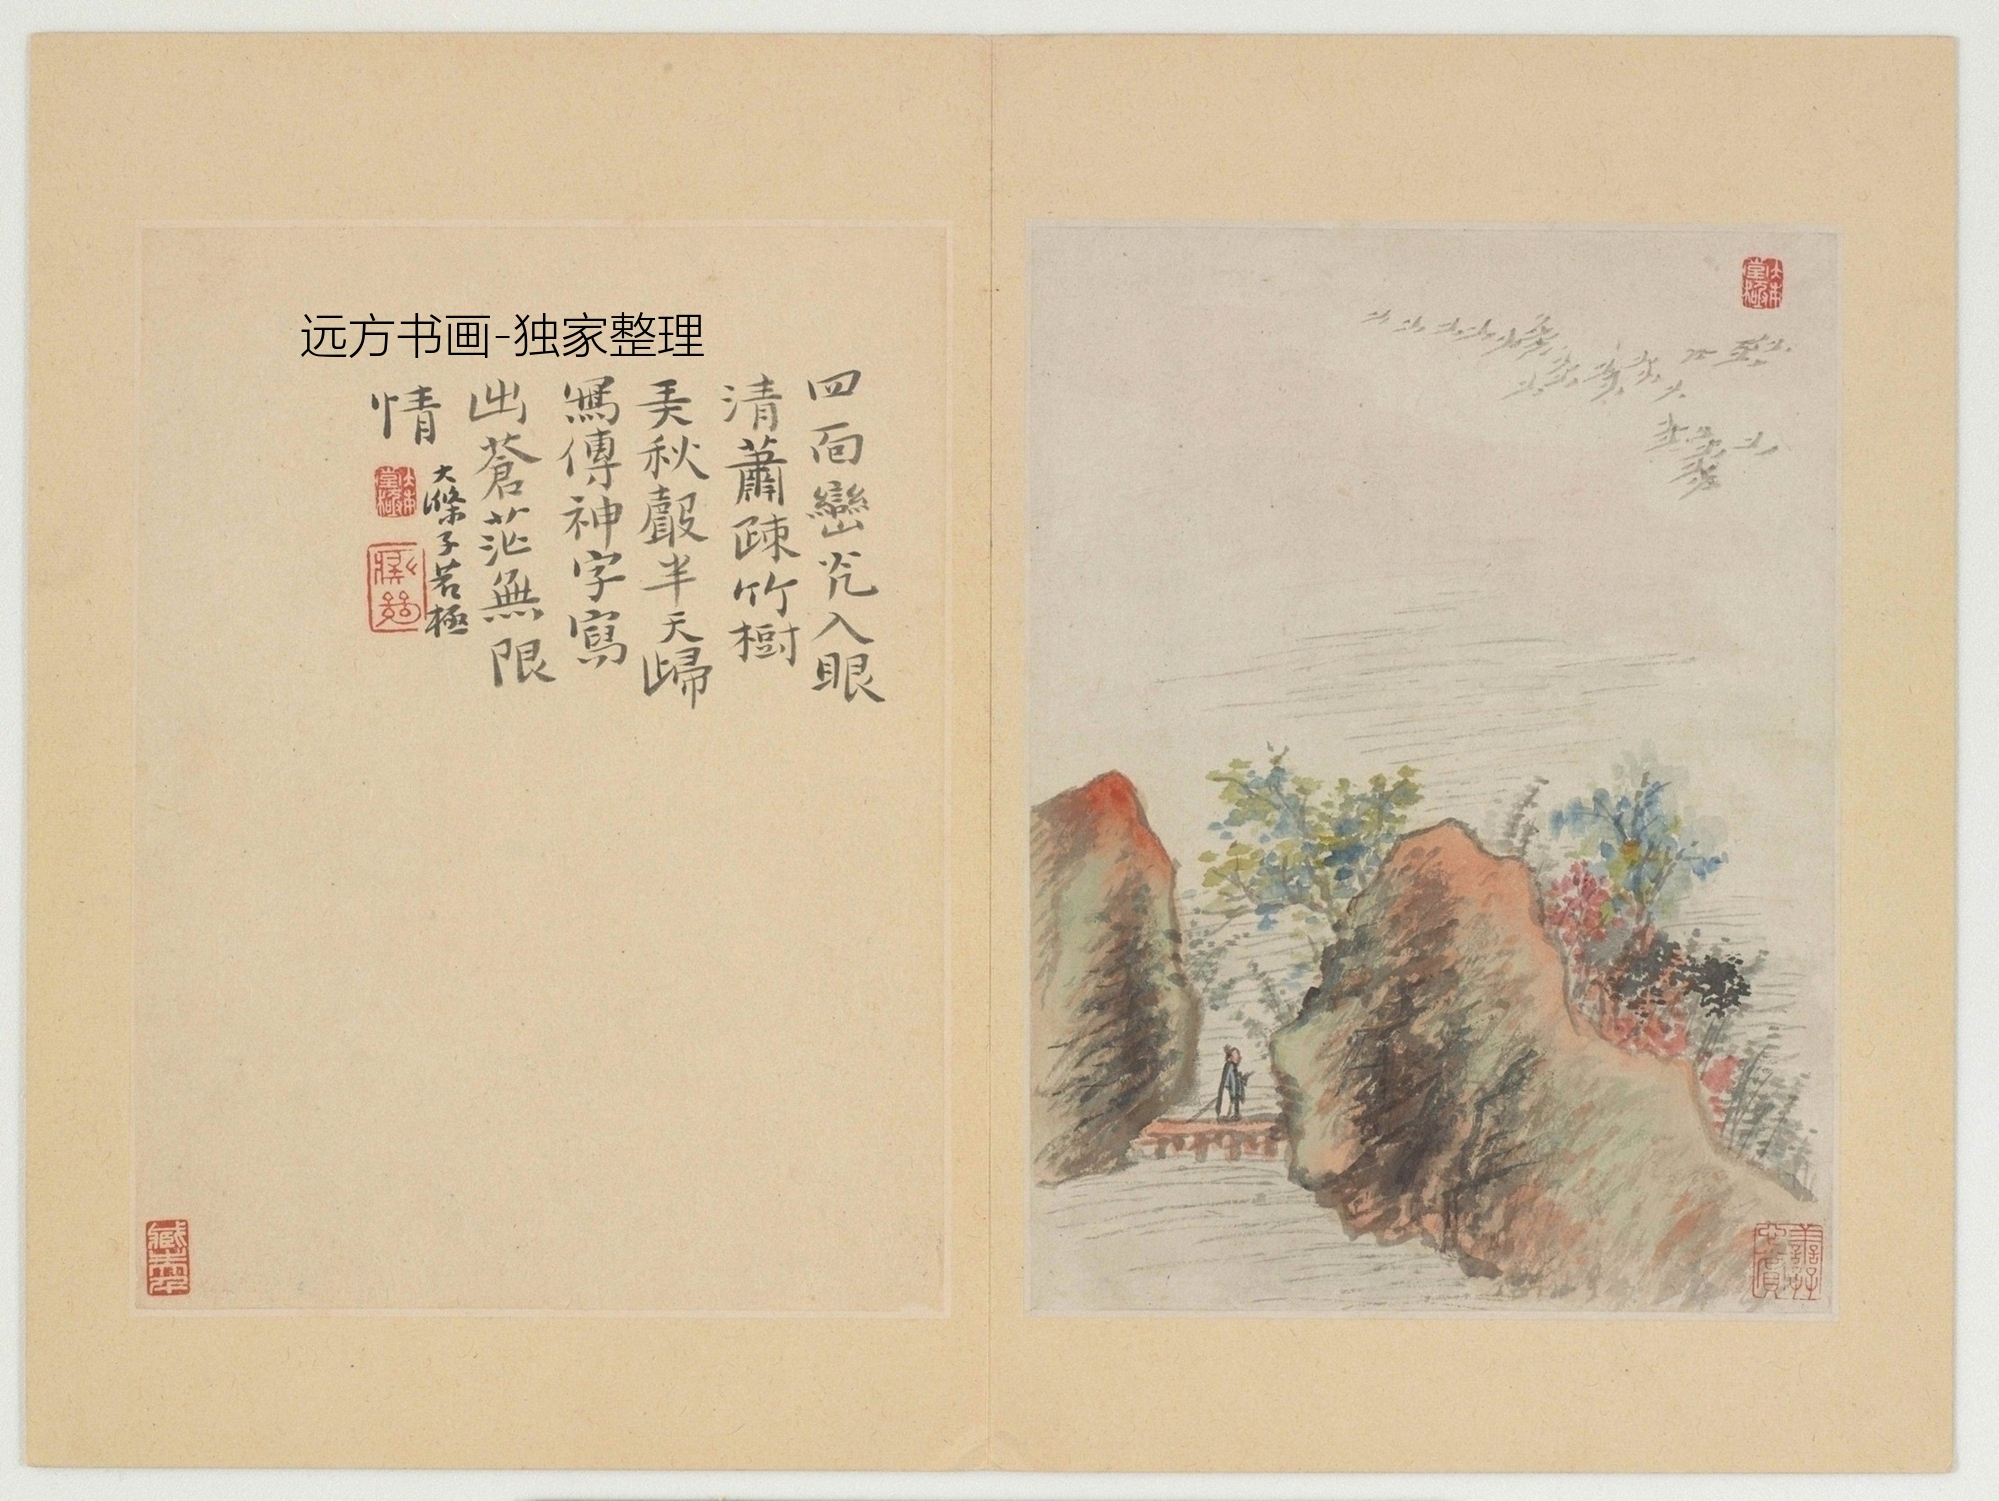 远方书画-独家整理
四面巒光入眼
清蕭疎竹樹
弄秋聲半天歸
鴈傳神字寫
出蒼茫無限
情
大滌子若極